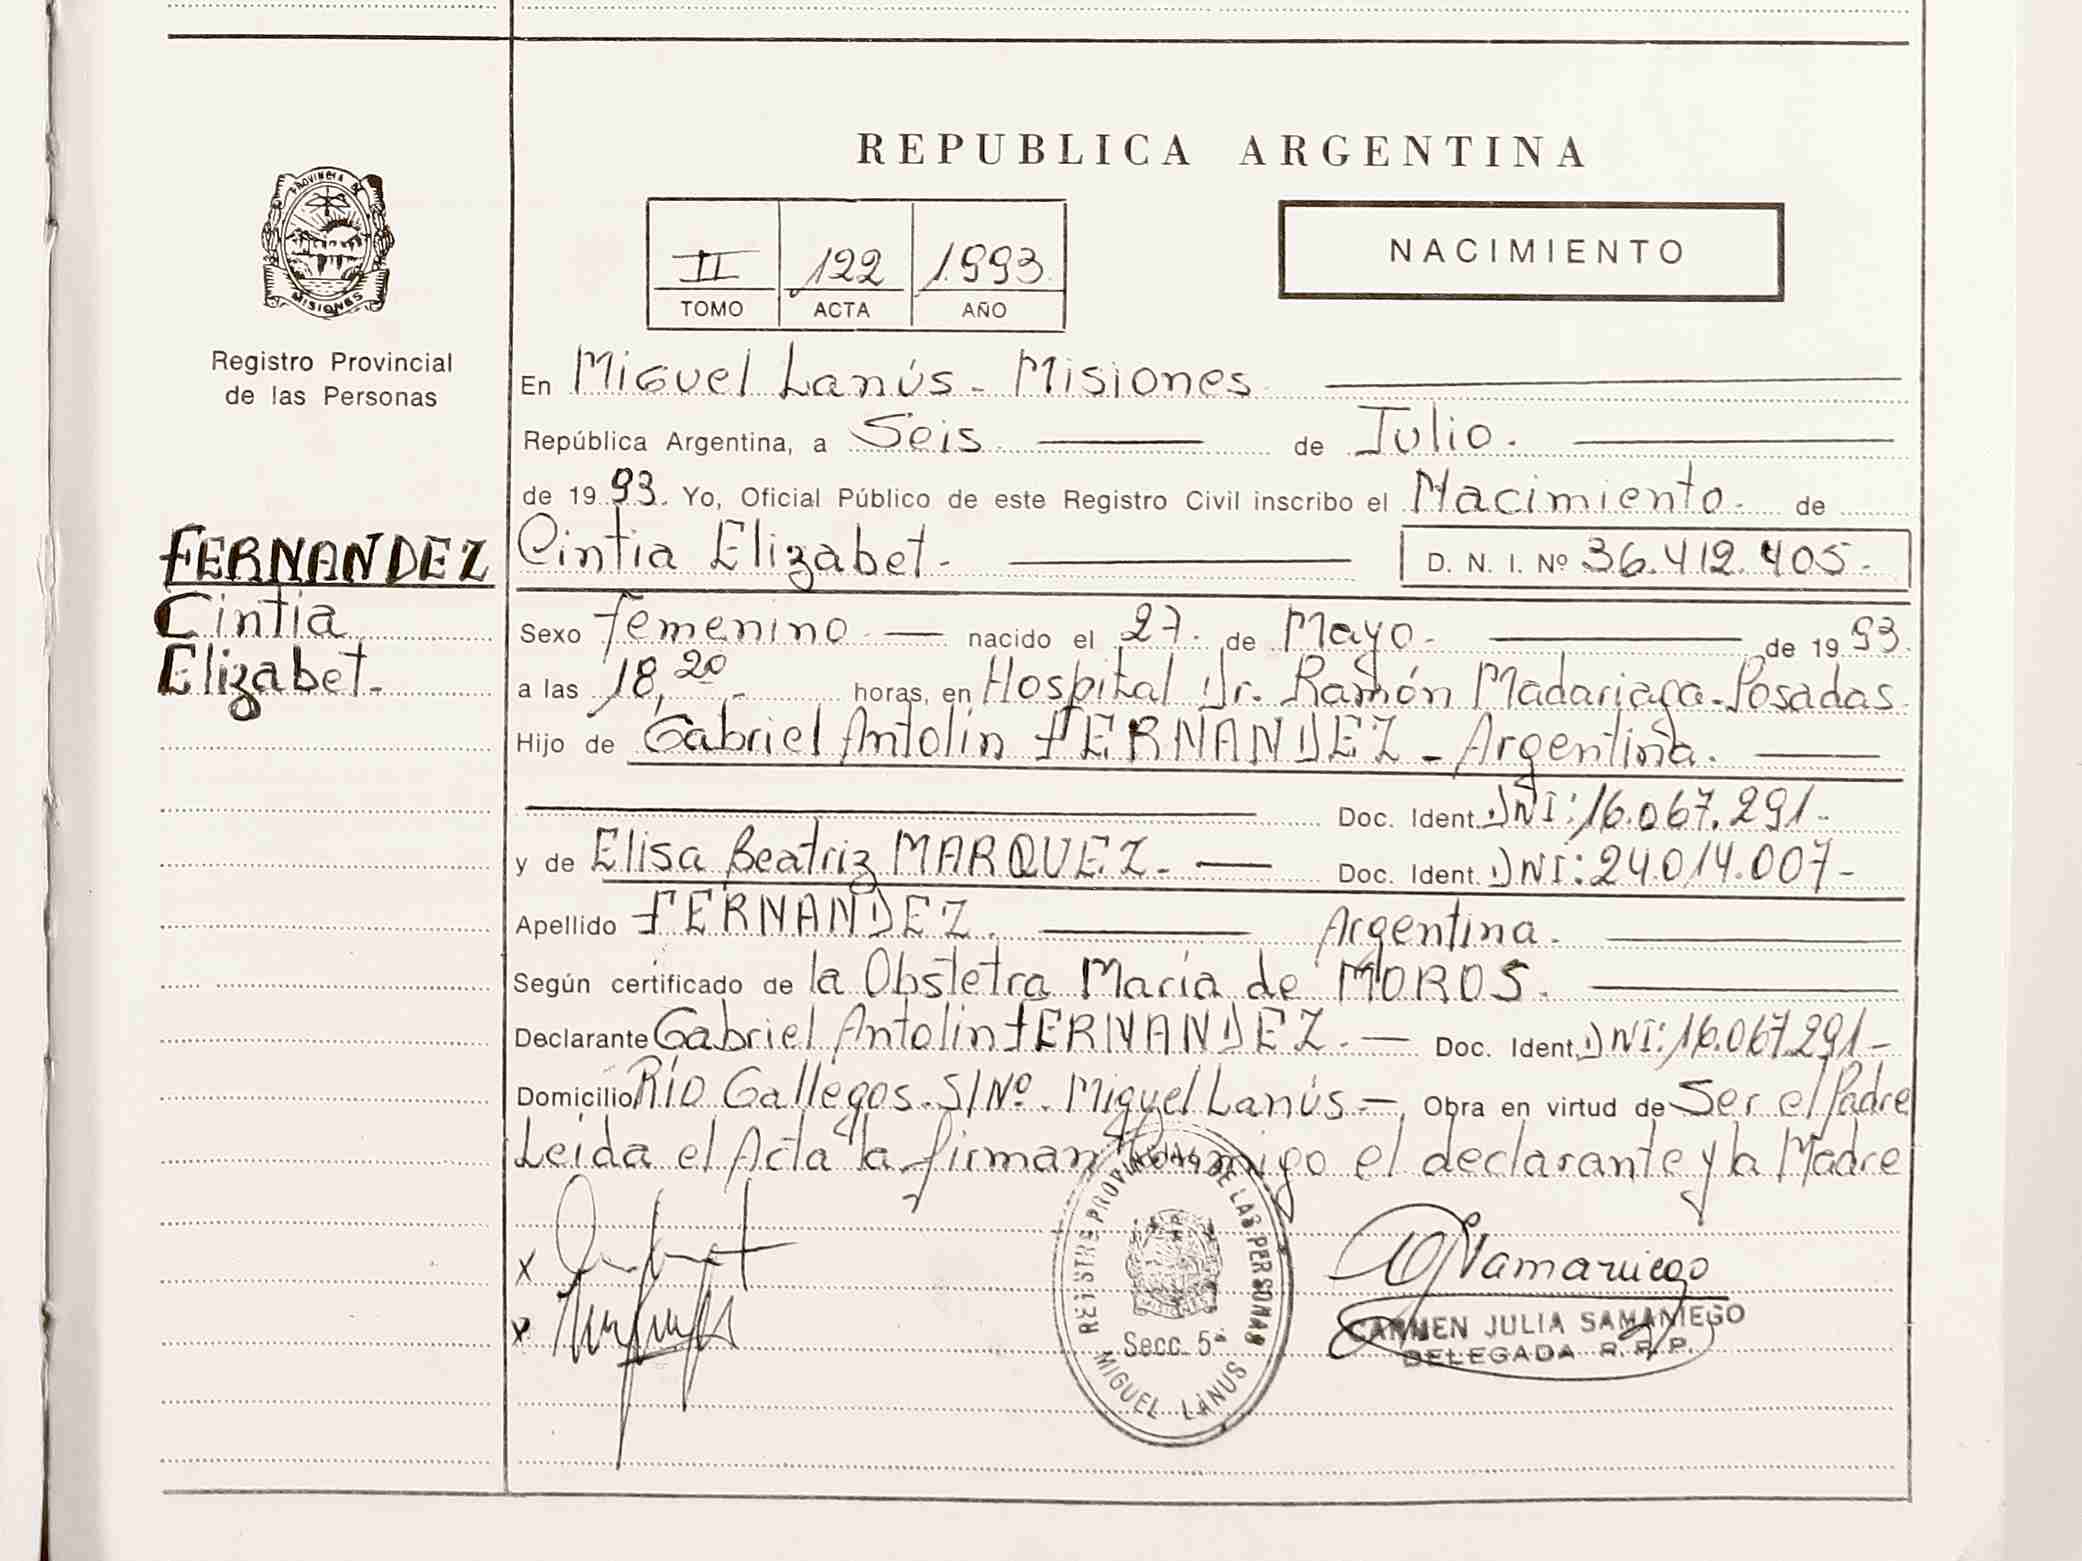 REPUBLICA ARGENTINA
PROVINCIA DE
MISIONES
Registro Provincial
de las Personas
II 122 1993
TOMO ACTA AÑO
NACIMIENTO
En Miguel Lanús - Misiones
República Argentina, a Seis de Julio.
de 1993. Yo, Oficial Público de este Registro Civil inscribo el Nacimiento. de
FERNANDEZ
Cintia
Elizabet.-
Cintia Elizabet.- D. N. I. Nº 36.412.405.-
Sexo femenino.- nacido el 27. de Mayo.- de 1993.
a las 18,20 horas, en Hospital Dr. Ramón Madariaga-Posadas.
Hijo de Gabriel Antolin FERNANDEZ - Argentina.
Doc. Ident. DNI: 16.067.291.-
y de Elisa Beatriz MARQUEZ.- Doc. Ident. DNI: 24.014.007-
Apellido FERNANDEZ. Argentina.
Según certificado de la Obstetra María de MOROS.
Declarante Gabriel Antolin FERNANDEZ.- Doc. Ident. DNI: 16.067.291-
Domicilio Río Gallegos. S/Nº. Miguel Lanús-, Obra en virtud de Ser el Padre
Leida el Acta la firman conmigo el declarante y la Madre
x
x
REGISTRO PROVINCIAL DE LAS PERSONAS
Secc. 5ª
MIGUEL LANUS
CJSamaniego
CARMEN JULIA SAMANIEGO
DELEGADA R. P. P.